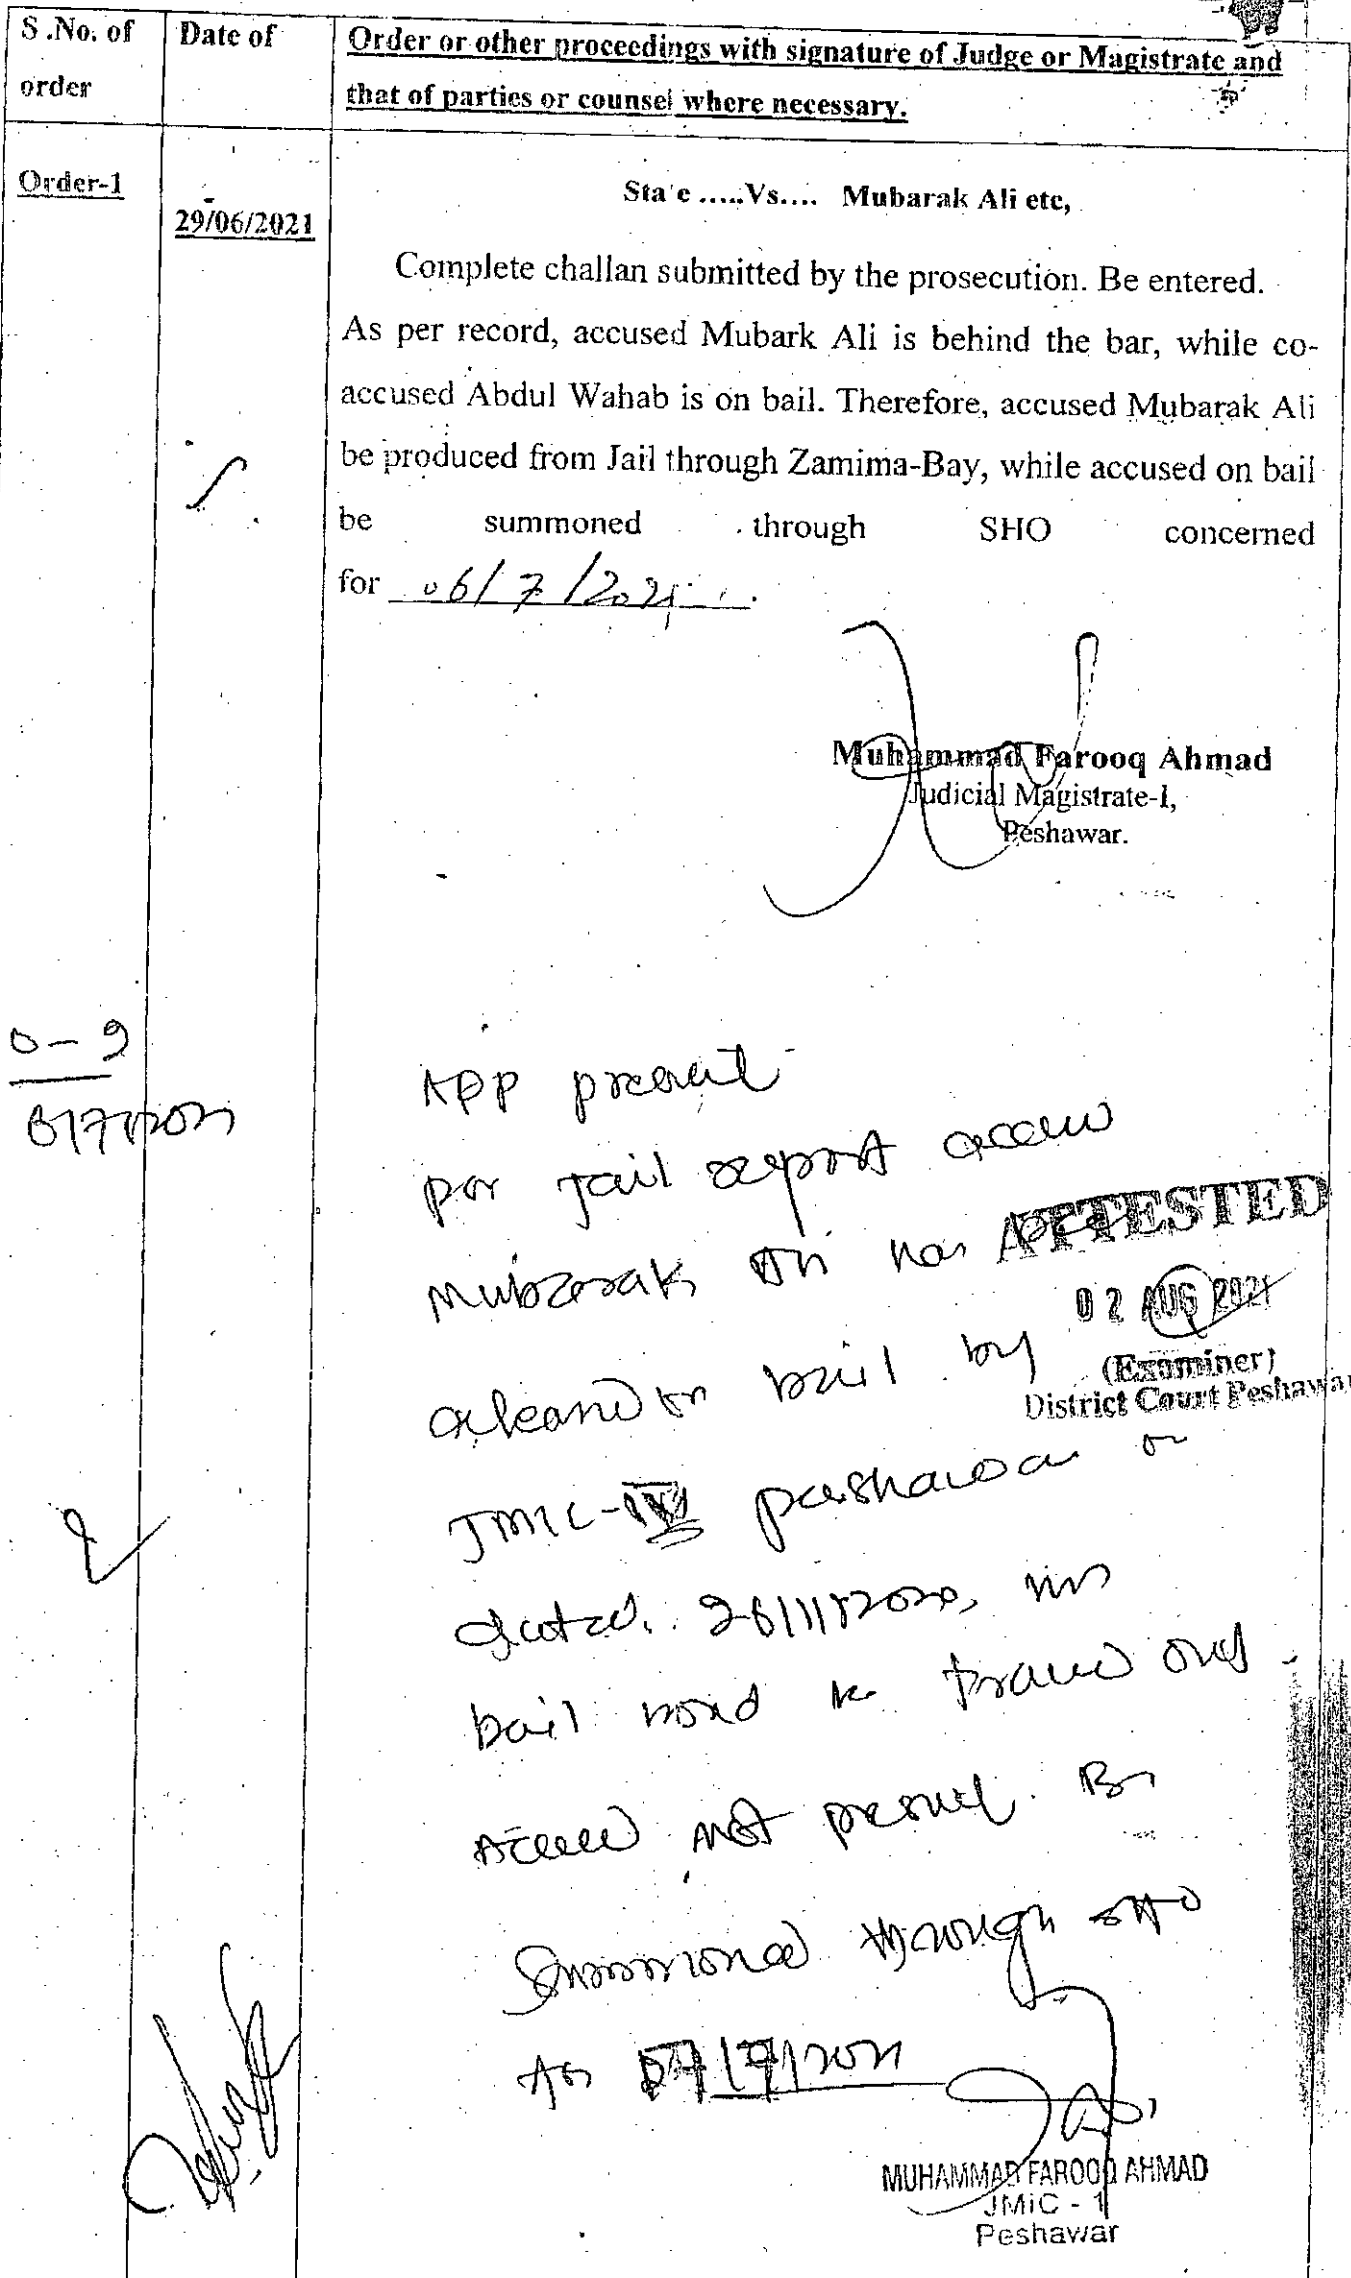 S .No. of order
Date of
Order or other proceedings with signature of Judge or Magistrate and
that of parties or counsel where necessary.
Order-1
29/06/2021
State .....Vs.... Mubarak Ali etc,
Complete challan submitted by the prosecution. Be entered.
As per record, accused Mubark Ali is behind the bar, while co-
accused Abdul Wahab is on bail. Therefore, accused Mubarak Ali
be produced from Jail through Zamima-Bay, while accused on bail
be summoned through SHO concerned
for 06/7/2021.
Muhammad Farooq Ahmad
Judicial Magistrate-I,
Peshawar.
0-2
6/7/2021
APP present
per Jail report accused
Mubarak Ali has
ATTESTED
02 AUG 2021
released on bail by
(Examiner)
District Court Peshawar
JMIC-IV Peshawar on
dated. 26/11/2020, his
bail bond
Accused not present. Be
Summoned through SHO
for 07/7/2021
MUHAMMAD FAROOQ AHMAD
JMiC - 1
Peshawar